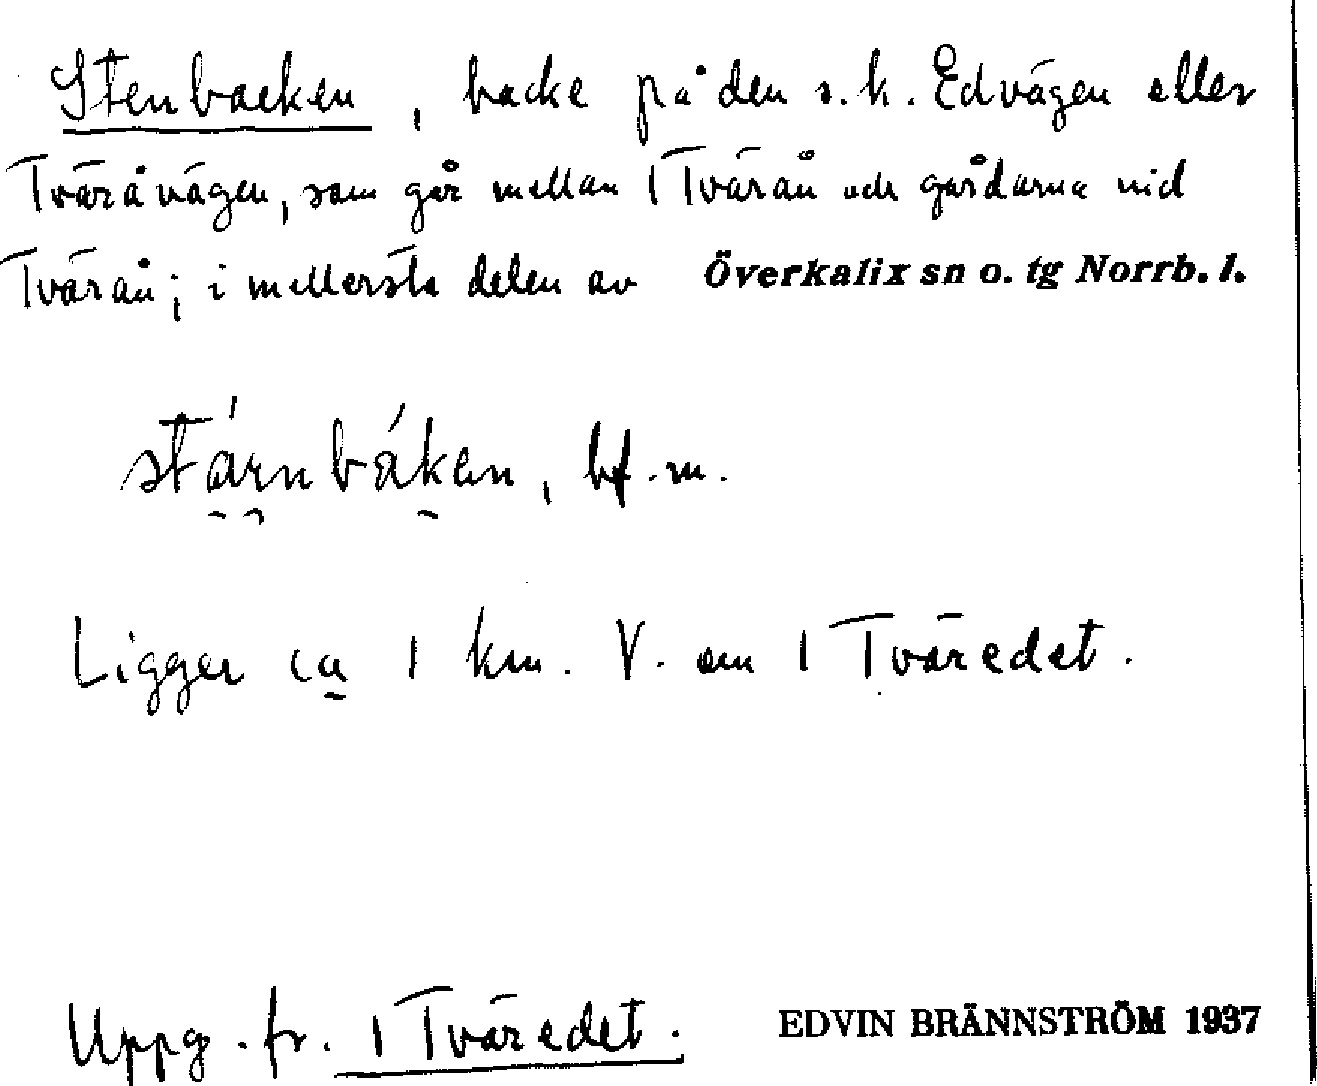 Stenbacken, backe på den s.k. Edvägen eller
Tväråvägen, som går mellan 1 Tvärån och gårdarna vid
Tvärån; i mellersta delen av Överkalix sn o. tg Norrb. l.
bf. m.
Ligger ca 1 km. V. om 1 Tväredet.
Uppg. fr. 1 Tväredet. EDVIN BRÄNNSTRÖM 1937